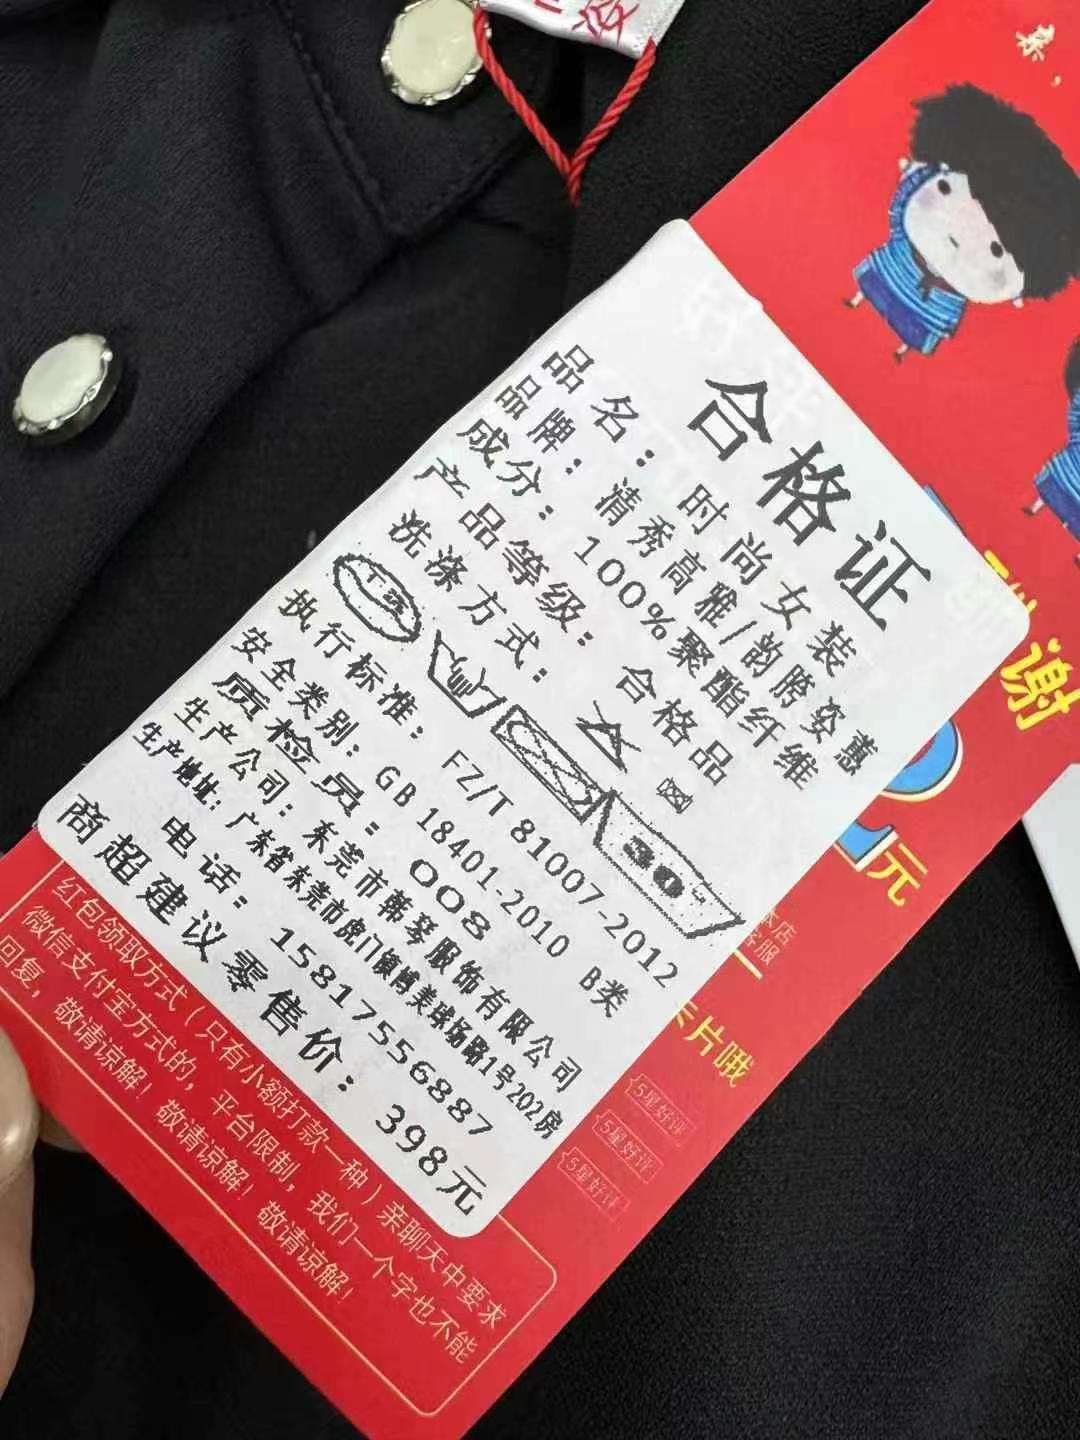 亲，
合格证
品名：时尚女装
品牌：清秀高雅/韵胯姿惠
成分：100%聚酯纤维
产品等级：合格品
洗涤方式：
干洗
30
执行标准：FZ/T 81007-2012
安全类别：GB 18401-2010 B类
质检员：008
生产公司：东莞市韩琴服饰有限公司
生产地址：广东省东莞市虎门镇博美球场路1号202房
电话：15817556887
商超建议零售价：398元
谢
元
本店
客服
卡片哦
5星好评
5星好评
5星好评
红包领取方式（只有小额打款一种）亲聊天中要求
微信支付宝方式的，平台限制，我们一个字也不能
回复，敬请谅解！敬请谅解！敬请谅解！